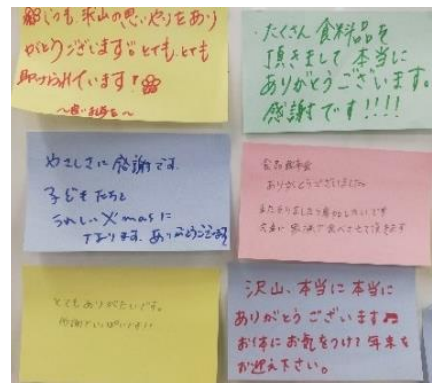 いつも沢山の思いやりをあり
がとうございます。とても、とても
助けられています!
たくさん食料品を
頂きまして本当に
ありがとうございます。
感謝です!!!!
やさしさに感謝です。
子どもたちと
うれしいXmasに
なります。ありがとうございます
食品配布会
ありがとうございました。
とてもありがたいです。
感謝でいっぱいです!!
沢山、本当に本当に
ありがとうございます♬
お体にお気をつけて年末を
お迎え下さい。